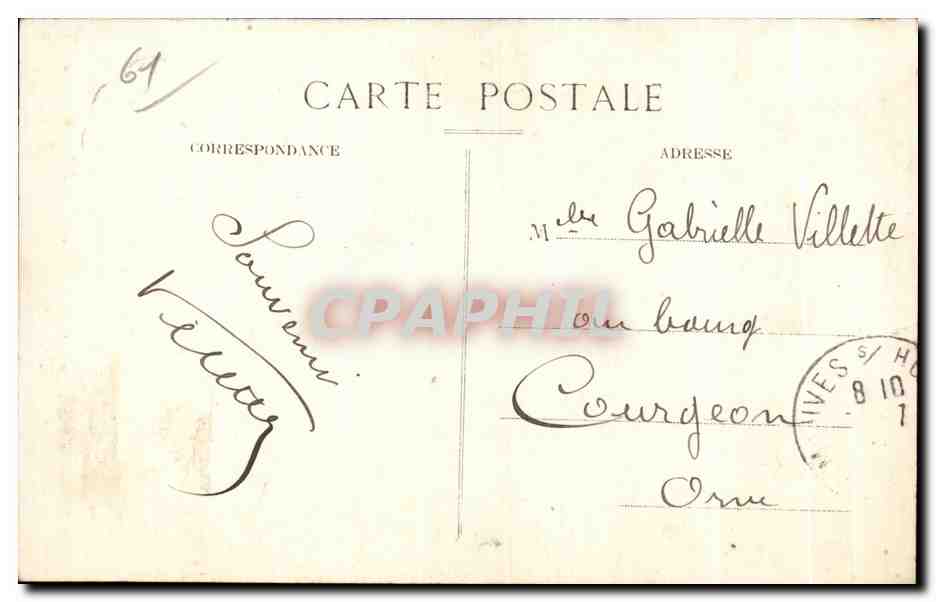 61
CARTE POSTALE
CORRESPONDANCE
Souvenir
Villette
ADRESSE
Mlle Gabrielle Villette
au bourg
Courgeon
Orne
IVES S/ HU
8 10
7
CPAPHIL